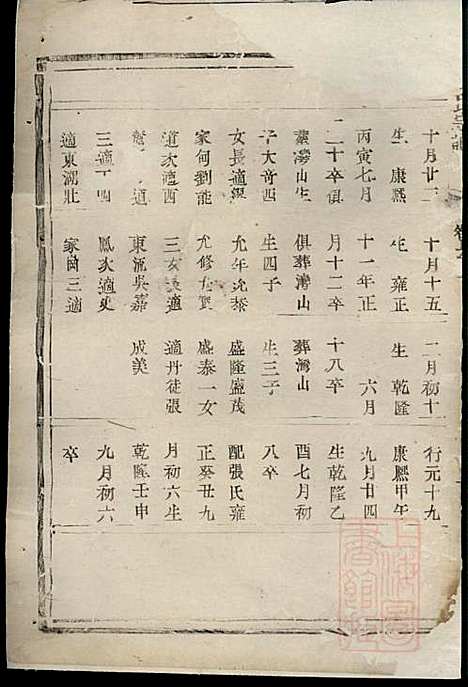 十月廿二
生 康熙
丙寅七月
二十卒俱
葬灣山生
子大奇四
女長適
家何劉龍
道次適西
適
三適 四
適東湖壯
十月十五
生 雍正
十一年正
月十二卒
俱葬灣山
生四子
允年允泰
允修允賢
三女長適
東流吳嘉
鳳次適史
家岡三適
二月初十
生 乾隆
六月
十八卒
葬灣山
生三子
盛隆盛茂
盛泰一女
適丹徒張
成美
行元十九
康熙甲午
九月廿四
生乾隆乙
酉七月初
八卒
配張氏雍
正癸丑九
月初六生
乾隆壬申
九月初六
卒
上海圖書館藏